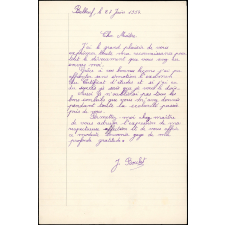 le 28 Juin 1932
Cher Maître,
J'ai le grand plaisir de vous
exprimer toute ma reconnaissance pour
tout le dévouement que vous avez eu
envers moi.
Grâce à vos bonnes leçons j'ai pu
affronter sans émotion le
du Certificat d'études et si j'ai eu
du succès je sais que je vous le dois.
Aussi je n'oublierai pas tous les
bons conseils que vous m'avez donnés
pendant toute la scolarité passée
près de vous.
Permettez moi cher maître
de vous adresser l'expression de ma
respectueuse affection et de vous offrir
ce modeste souvenir gage de ma
profonde gratitude.
J.